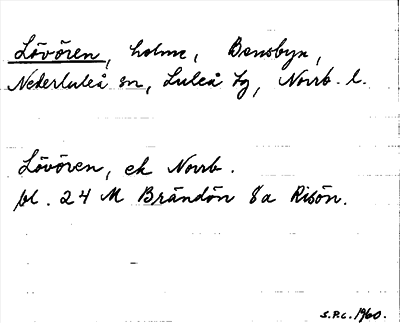 Lövören, holme, Bensbyn,
Nederluleå sn, Luleå tg, Norrb. l.
Lövören, ek Norrb.
bl. 24 M Brändön 8a Risön.
S.P.C. 1960.